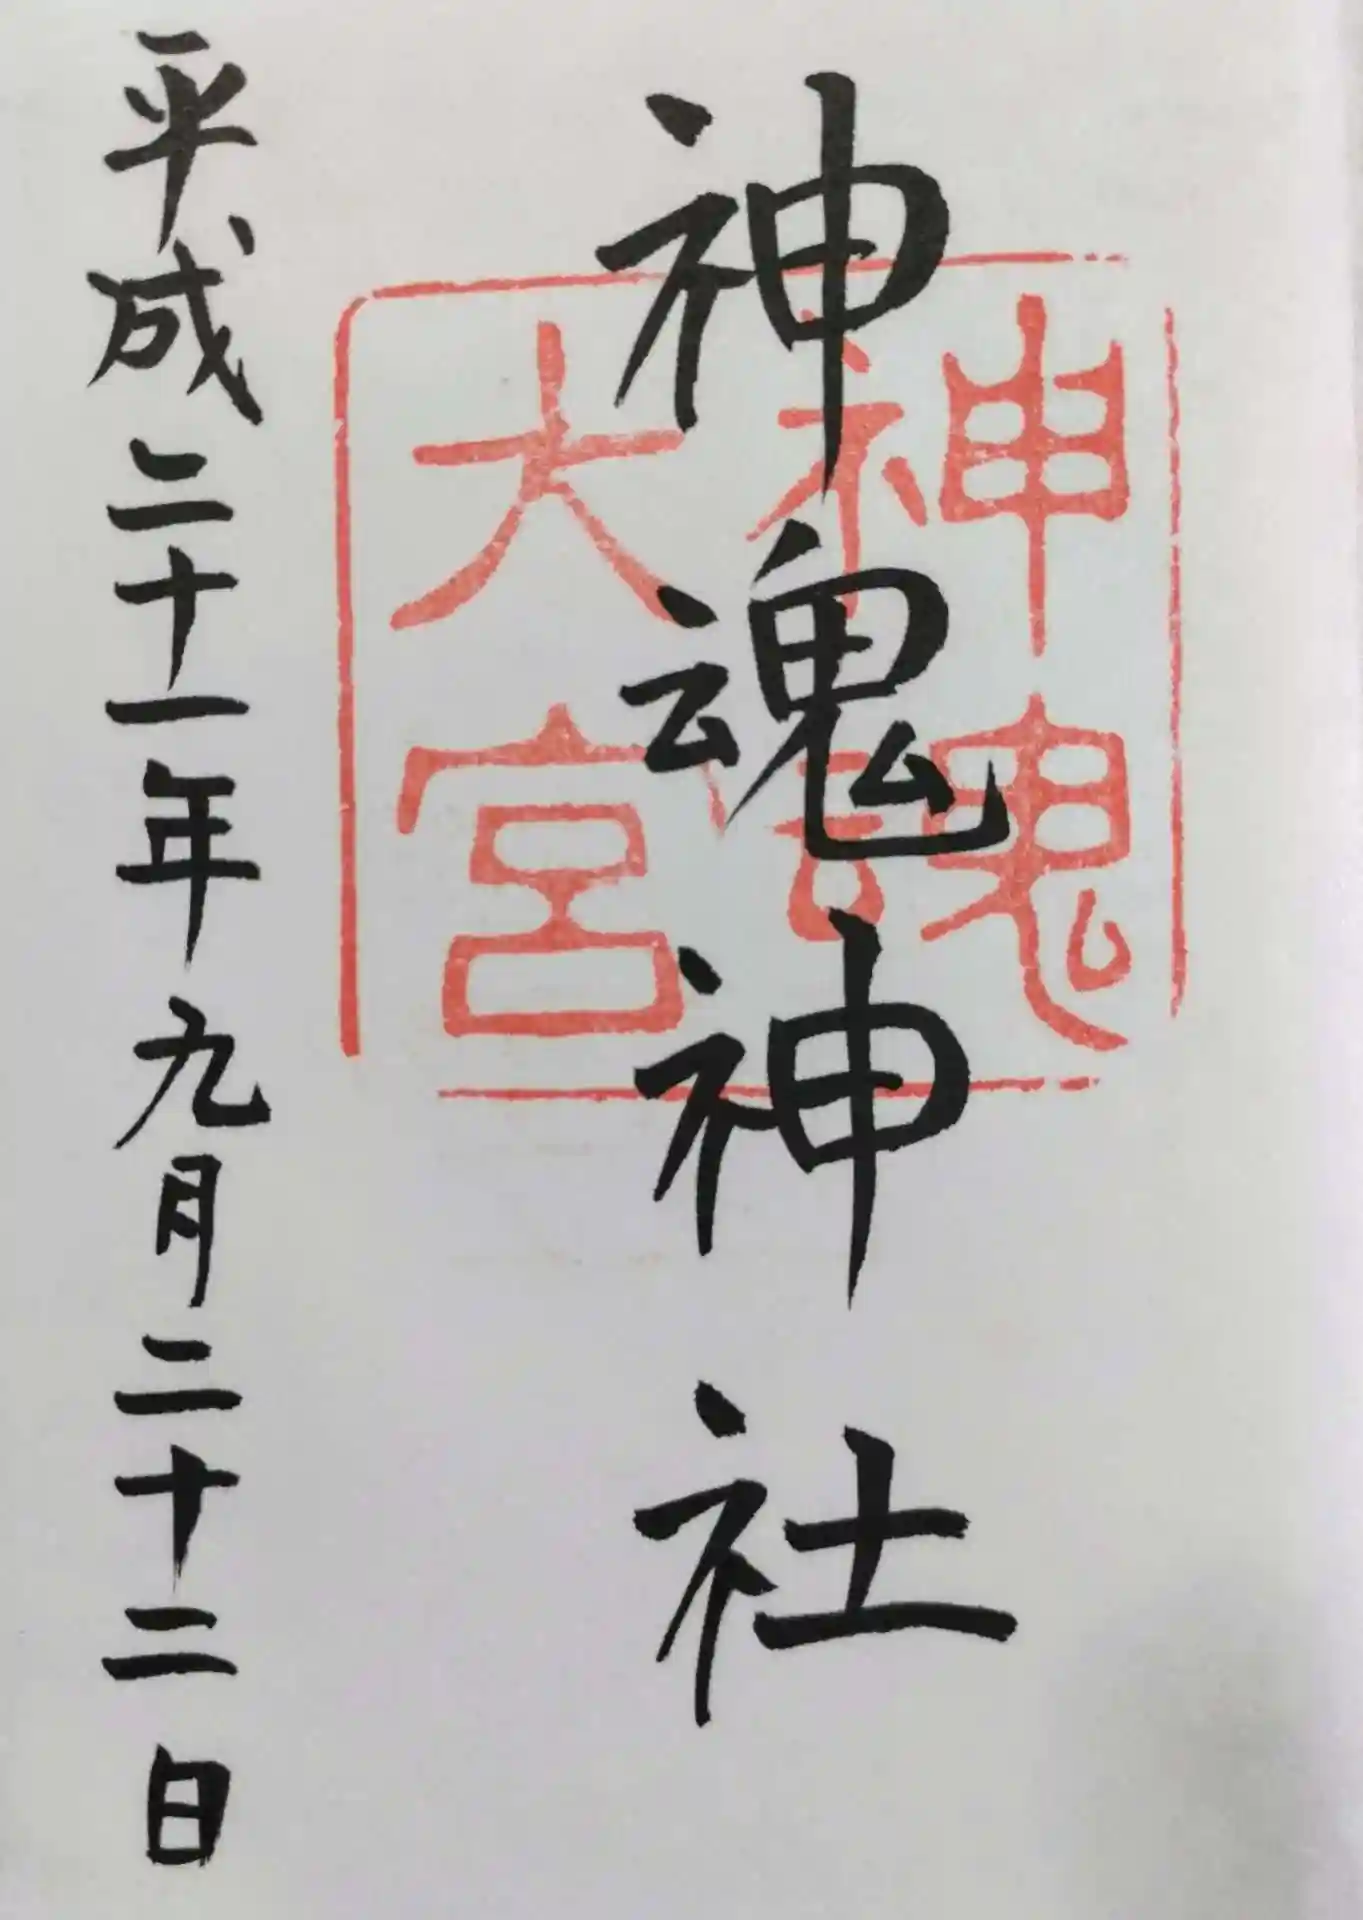 神魂神社
神魂
大宮
平成二十一年九月二十二日